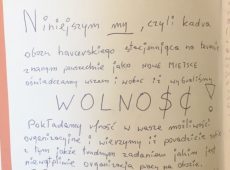 Niniejszym my, czyli kadra
obozu harcerskiego stacjonująca na terenie
znanym powszechnie jako NOWE MIEJSCE
oświadczamy wszem i wobec iż wybraliśmy
WOLNO$Ć!
Pokładamy ufność w wasze możliwości
organizacyjne i wierzymy iż poradzicie sobie
z tym jakże trudnym zadaniem jakim jest
niewątpliwie organizacja pracy na obozie.